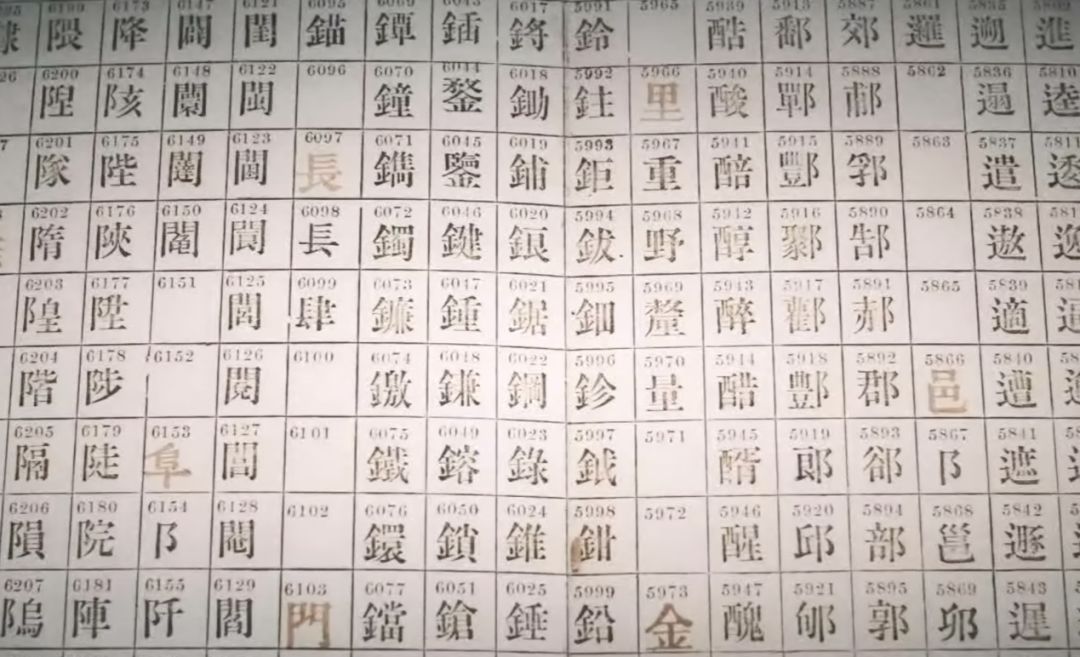 進 5810 逵 5811 逶
遡 5836 遢 5837 遣 5838 遨 5839 適 5840 遭 5841 遮 5842 遯 5843 遲
5861 邏 5862 5863 5864 5865 5866 邑 5867 阝 5868 邕 5869
5887 郊 5888 5889 郛 5890 郜 5891 郝 5892 郡 5893 郤 5894 部 5895 郭
5913 鄱 5914 鄲 5915 酆 5916 鄹 5917 5918 酆 5919 郎 5920 邱 5921
5939 酷 5940 酸 5941 醅 5942 醇 5943 醉 5944 醋 5945 醑 5946 醒 5947 醜
5965 5966 里 5967 重 5968 野 5969 釐 5970 量 5971 5972 5973 金
5991 鈴 5992 鉒 5993 鉅 5994 鈸 5995 鈿 5996 鉁 5997 鉞 5998 鉗 5999 鉛
6017 6018 鋤 6019 鋪 6020 鋃 6021 鋸 6022 鋼 6023 錄 6024 錐 6025 錘
6043 鍤 6044 鍪 6045 鑒 6046 鍵 6047 鍾 6048 鎌 6049 鎔 6050 鎖 6051 鎗
6069 鐔 6070 鐘 6071 鐫 6072 鐲 6073 鐮 6074 6075 鐵 6076 鐶 6077 鐺
6095 錨 6096 6097 長 6098 長 6099 肆 6100 6101 6102 6103 門
6121 閨 6122 閩 6123 閫 6124 閬 6125 閭 6126 閱 6127 6128 閹 6129 閻
6147 6148 闌 6149 闥 6150 闔 6151 6152 6153 阜 6154 阝 6155 阡
6173 降 6174 陔 6175 陛 6176 陝 6177 陞 6178 陟 6179 陡 6180 院 6181 陣
6199 隈 6200 隉 6201 隊 6202 隋 6203 隍 6204 階 6205 隔 6206 隕 6207 隖